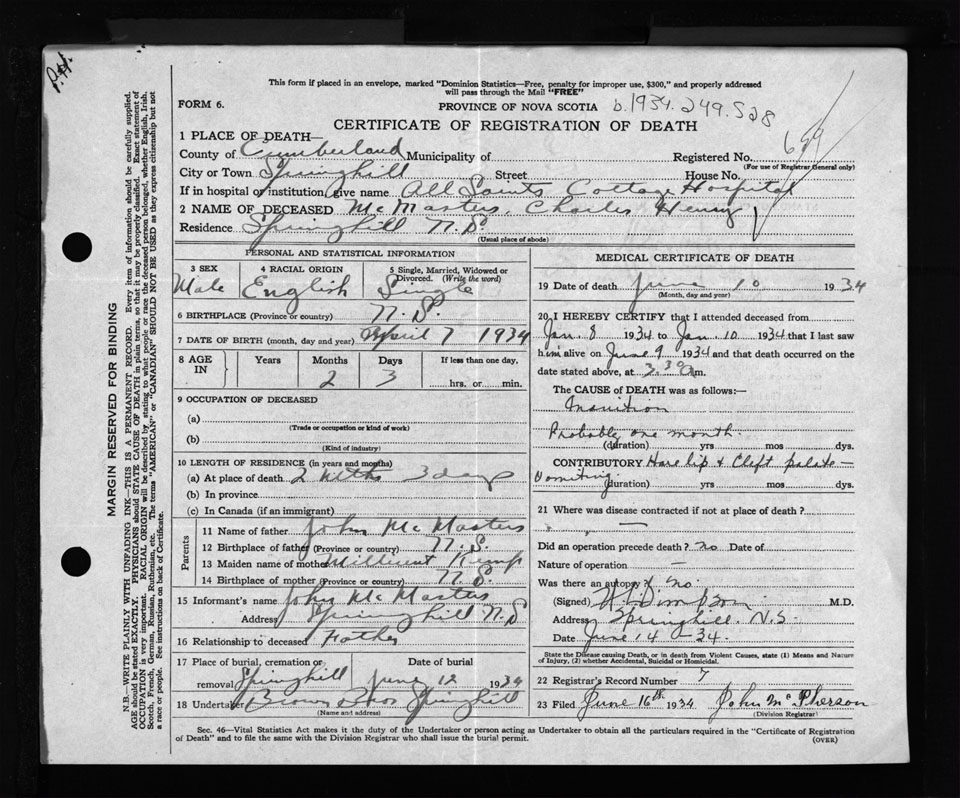 P.H.
This form if placed in an envelope, marked "Dominion Statistics—Free, penalty for improper use, $300," and properly addressed
will pass through the Mail "FREE"
FORM 6.
PROVINCE OF NOVA SCOTIA b.1934.249.528
CERTIFICATE OF REGISTRATION OF DEATH
1 PLACE OF DEATH—
County of Cumberland Municipality of Registered No.
(For use of Registrar General only)
City or Town Springhill Street House No.
If in hospital or institution, give name All Saints Cottage Hospital
2 NAME OF DECEASED McMasters, Charles Henry
Residence Springhill N.S.
(Usual place of abode)
PERSONAL AND STATISTICAL INFORMATION
3 SEX 4 RACIAL ORIGIN 5 Single, Married, Widowed or
Divorced. (Write the word)
Male English Single
6 BIRTHPLACE (Province or country) N.S.
7 DATE OF BIRTH (month, day and year) April 7 1934
8 AGE IN Years Months Days If less than one day.
2 3 hrs. or min.
9 OCCUPATION OF DECEASED
(a)
(Trade or occupation or kind of work)
(b)
(Kind of industry)
10 LENGTH OF RESIDENCE (in years and months)
(a) At place of death 2 mths 3 days
(b) In province
(c) In Canada (if an immigrant)
Parents
11 Name of father John McMasters
12 Birthplace of father (Province or country) N.S.
13 Maiden name of mother Millicent Kemp
14 Birthplace of mother (Province or country) N.S.
15 Informant's name John McMasters
Address Springhill N.S
16 Relationship to deceased Father
17 Place of burial, cremation or Date of burial
removal Springhill June 12 1934
18 Undertaker Brown Bros Springhill
(Name and address)
MEDICAL CERTIFICATE OF DEATH
19 Date of death June 10 1934
(Month, day and year)
20 I HEREBY CERTIFY that I attended deceased from
Jan. 8 1934 to Jan. 10 1934 that I last saw
him alive on June 9 1934 and that death occurred on the
date stated above, at 3.30 a.m.
The CAUSE of DEATH was as follows:—
Inanition
Probably one month.
(duration) yrs mos dys.
CONTRIBUTORY Hare lip & Cleft palate —
Vomiting (duration) yrs mos dys.
21 Where was disease contracted if not at place of death?
—
Did an operation precede death? no Date of
Nature of operation —
Was there an autopsy? no.
(Signed) M.D.
Address Springhill. N.S.
Date June 14 - 34.
State the Disease causing Death, or in death from Violent Causes, state (1) Means and Nature
of Injury, (2) whether Accidental, Suicidal or Homicidal.
22 Registrar's Record Number 7
23 Filed June 16th 1934 John McPherson
(Division Registrar)
Sec. 46—Vital Statistics Act makes it the duty of the Undertaker or person acting as Undertaker to obtain all the particulars required in the "Certificate of Registration
of Death" and to file the same with the Division Registrar who shall issue the burial permit.
(OVER)
MARGIN RESERVED FOR BINDING
N.B.—WRITE PLAINLY WITH UNFADING INK—THIS IS A PERMANENT RECORD. Every item of information should be carefully supplied.
AGE should be stated EXACTLY. PHYSICIANS should STATE CAUSE OF DEATH in plain terms, so that it may be properly classified. Exact statement of
OCCUPATION is very important. RACIAL ORIGIN will be described by stating to what people or race the deceased person belonged, whether English, Irish,
Scotch, French, German, Russian, Ruthenian, etc. The terms "AMERICAN" or "CANADIAN" SHOULD NOT BE USED as they express citizenship but not
a race or people. See instructions on back of Certificate.